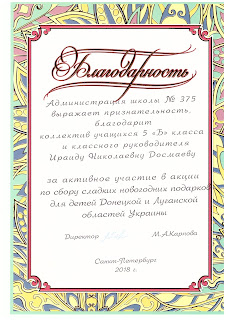 Благодарность
Администрация школы № 375
выражает признательность,
благодарит
коллектив учащихся 5 «Б» класса
и классного руководителя
Ираиду Николаевну Досмаеву
за активное участие в акции
по сбору сладких новогодних подарков
для детей Донецкой и Луганской
областей Украины
Директор М.А.Карпова
Санкт-Петербург
2018 г.